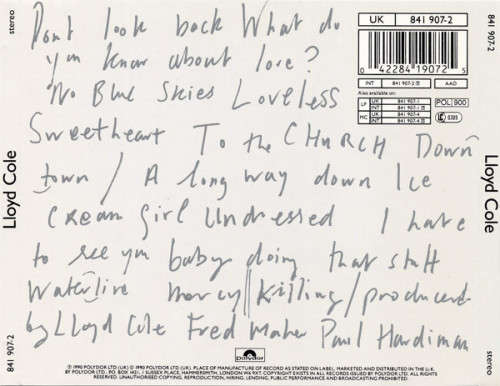 Dont look back What do
you know about love?
No Blue Skies Loveless
Sweetheart To the CHURCH Down
town / A long way down Ice
cream girl Undressed I hate
to see you baby doing that stuff
Waterline mercy Killing / produced
by Lloyd Cole Fred Maher Paul Hardiman
stereo
Lloyd Cole
841 907-2
UK 841 907-2
0 42284 19072 5
INT 841 907-2 AAD
Also available on:
LP UK 841 907-1
INT 841 907-1
MC UK 841 907-4
INT 841 907-4
POL 900
LC 0309
841 907-2
Lloyd Cole
stereo
polydor
℗ 1990 POLYDOR LTD (UK) © 1990 POLYDOR LTD (UK). PLACE OF MANUFACTURE OF RECORD AS STATED ON LABEL. MARKETED AND DISTRIBUTED IN THE U.K.
BY POLYDOR LTD. P.O. BOX 1421, 1 SUSSEX PLACE, HAMMERSMITH, LONDON W6 9XT. COPYRIGHT EXISTS IN ALL RECORDS ISSUED BY POLYDOR LTD. ALL RIGHTS
RESERVED. UNAUTHORISED COPYING, REPRODUCTION, HIRING, LENDING, PUBLIC PERFORMANCE AND BROADCASTING PROHIBITED.